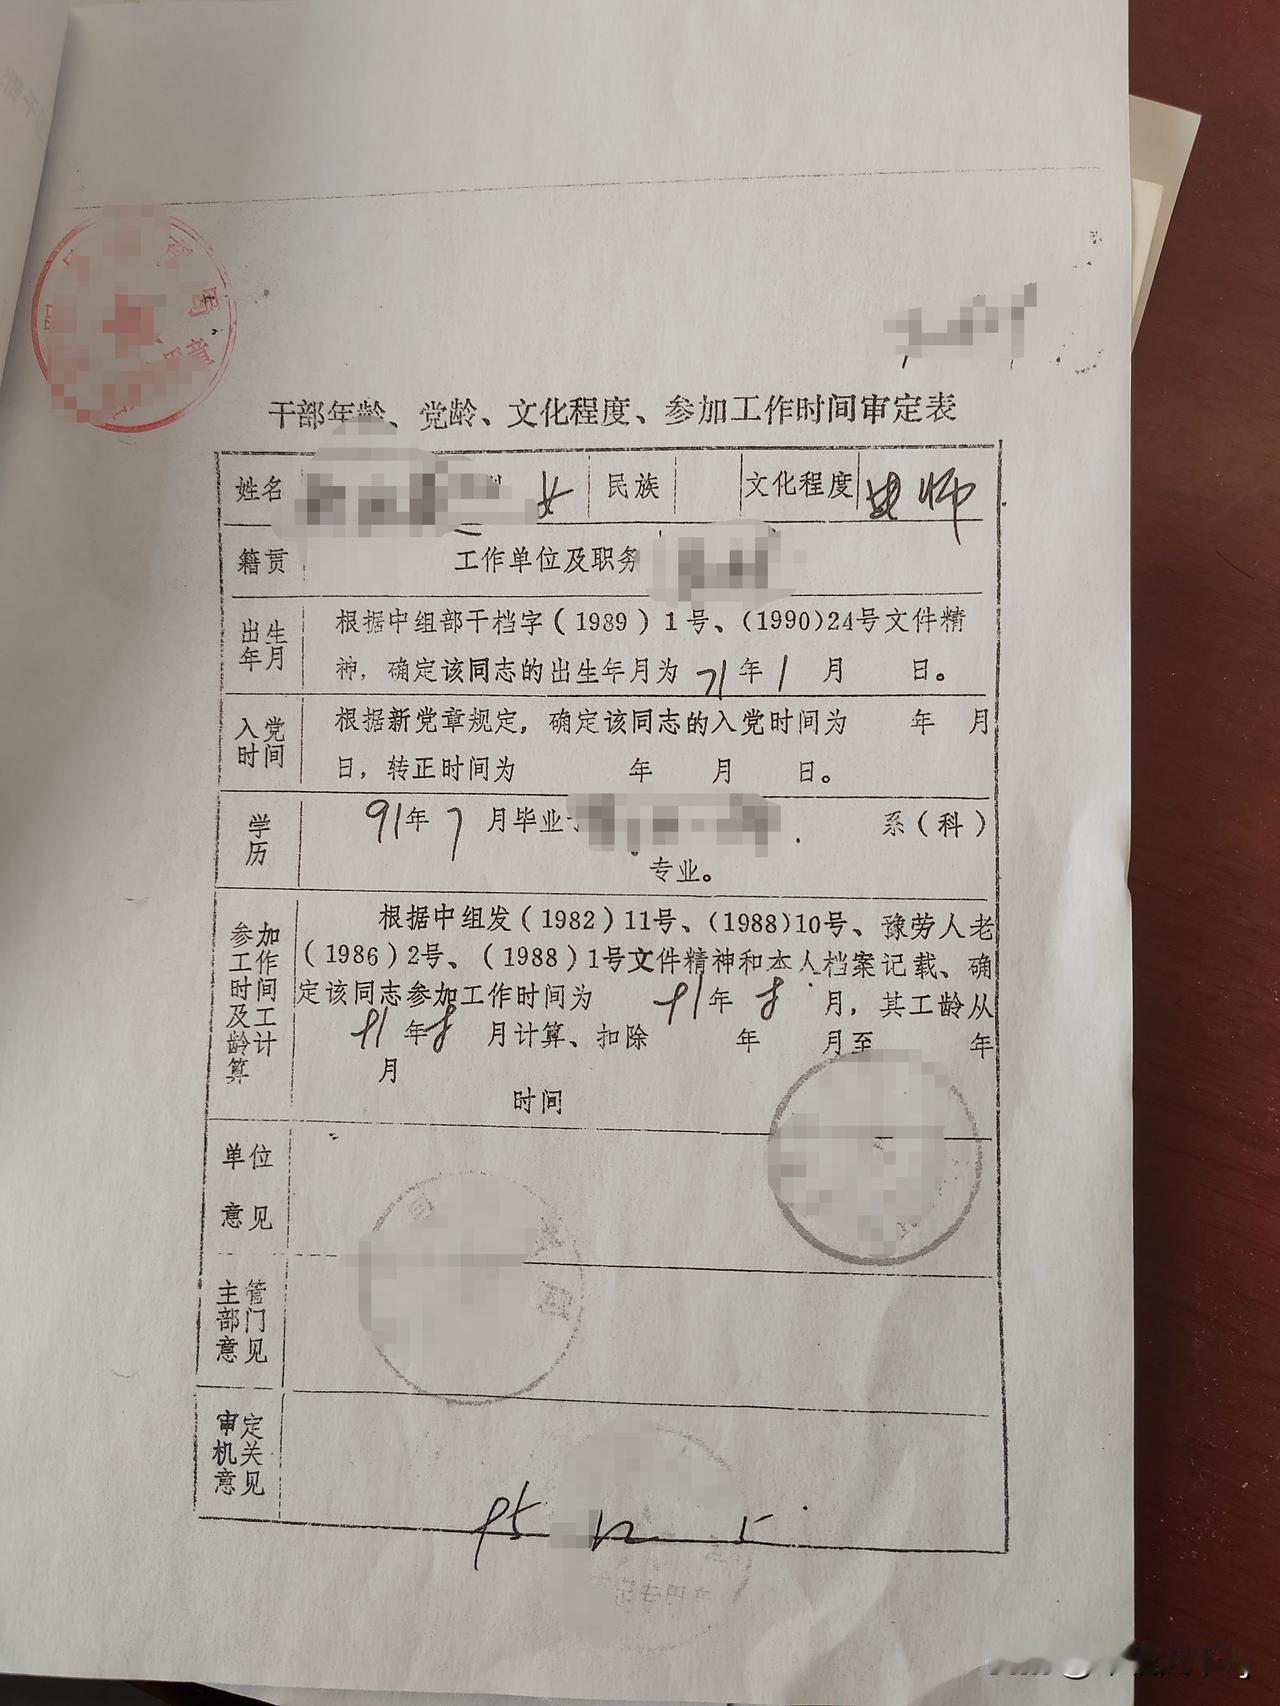 干部年龄、党龄、文化程度、参加工作时间审定表
姓名 女 民族 文化程度 师
籍贯 工作单位及职务
出生年月 根据中组部干档字(1989)1号、(1990)24号文件精
神，确定该同志的出生年月为 71年1月 日。
入党时间 根据新党章规定，确定该同志的入党时间为 年 月
日，转正时间为 年 月 日。
学历 91年7月毕业 系(科)
专业。
参加工作时间及工龄计算 根据中组发(1982)11号、(1988)10号、豫劳人老
(1986)2号、(1988)1号文件精神和本人档案记载、确
定该同志参加工作时间为 91年8月，其工龄从
91年8月计算、扣除 年 月至 年
月
时间
单位意见
主管部门意见
审定机关意见
95 12 5